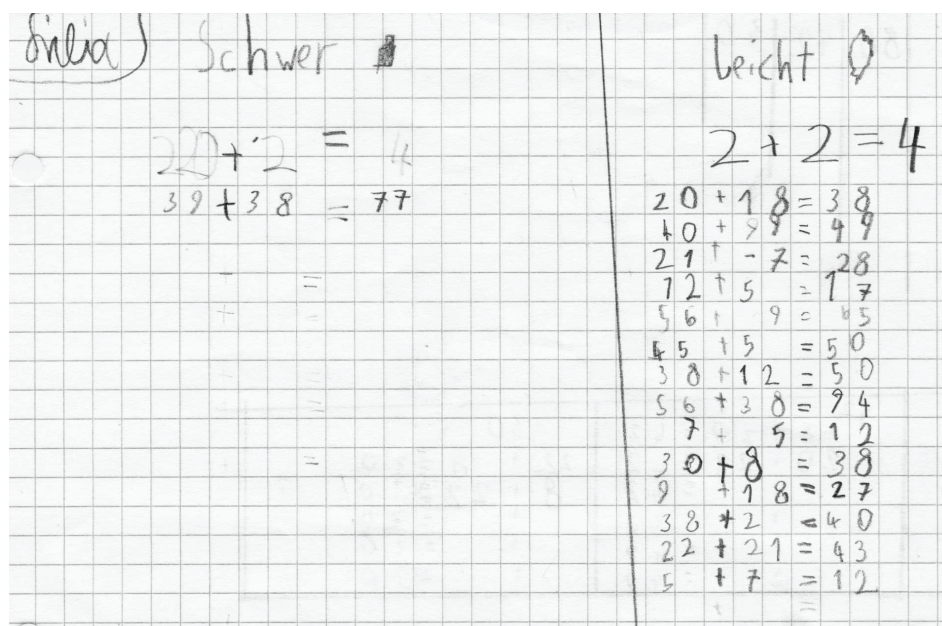 Schwer
39 + 38 = 77
Leicht
2 + 2 = 4
20 + 18 = 38
40 + 99 = 49
21 + - 7 = 28
12 + 5 = 17
56 + 9 = 65
45 + 5 = 50
38 + 12 = 50
56 + 38 = 94
7 + 5 = 12
30 + 8 = 38
9 + 18 = 27
38 + 2 = 40
22 + 21 = 43
5 + 7 = 12